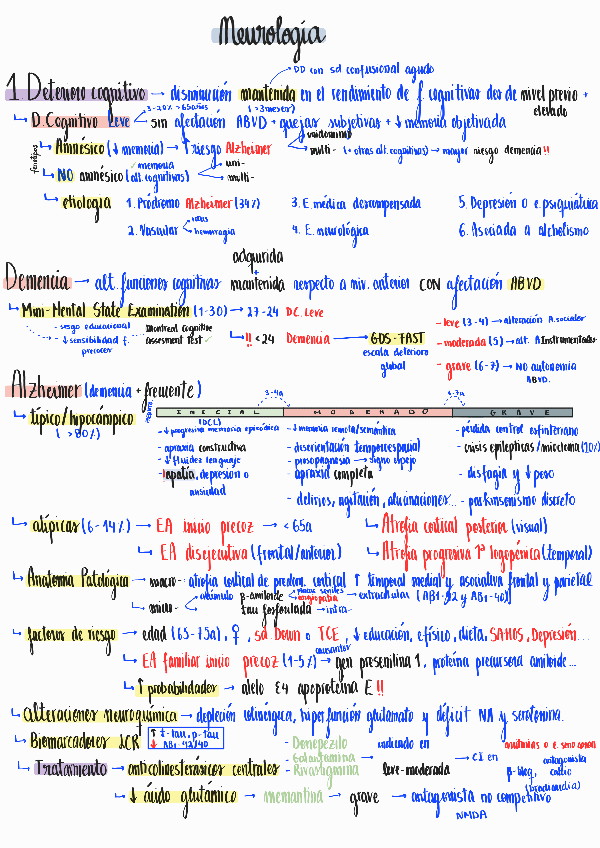 Neurología
DD con sd confusional agudo
1 Deterioro cognitivo → disminución mantenida en el rendimiento de f cognitivas desde nivel previo +
(>3meses) elevado
3-20% >65años
D. Cognitivo Leve sin afectación ABVD + quejas subjetivas + ↓ memoria objetivada
fenotipos
Amnésico (↓ memoria) → ↑ riesgo Alzheimer unidominio
multi- (+ otras alt. cognitivas) → mayor riesgo demencia!!
NO amnésico (alt. cognitivas) ✓ memoria uni-
multi-
etiología 1. Pródromo Alzheimer (34%) 3. E. médica descompensada 5. Depresión o e. psiquiátrica
2. Vascular hemorragia 4. E. neurológica 6. Asociada a alcoholismo
adquirida
+
Demencia → alt. funciones cognitivas mantenida respecto a niv. anterior con afectación ABVD
Mini-Mental State Examination (1-30) → 27-24 DC. Leve
- sesgo educacional
- ↓ sensibilidad f. precoces
Montreal Cognitive Assesment Test ✓
!! <24 Demencia → GDS-FAST
escala deterioro global
- leve (3-4) → alteración A. sociales
- moderada (5) → alt. A. Instrumentales
- grave (6-7) → no autonomía ABVD.
Alzheimer (demencia + frecuente)
3-4a 4-7a
típico/hipocámpico INICIAL MODERADO GRAVE
(>80%) (DCL)
- ↓ progresiva memoria episódica - ↓ memoria remota/semántica - pérdida control esfinteriano
- apraxia constructiva - desorientación temporoespacial - crisis epilepticas/mioclonía (10%)
- ↓ fluidez lenguaje - prosopagnosia → signo espejo
- apatía, depresión o ansiedad - apraxia completa - disfagia y ↓ peso
- delirios, agitación, alucinaciones... - parkinsonismo discreto
atípicas (6-14%) → EA inicio precoz → <65a Atrofia cortical posterior (visual)
EA disejecutiva (frontal/anterior) Atrofia progresiva 1ª logopénica (temporal)
Anatomía Patológica → macro- atrofia cortical de predom. cortical ↑ temporal medial y asociativa frontal y parietal
micro- acúmulo β-amiloide placas seniles angiopatía → extracelular (Aβ1-42 y Aβ1-40)
tau fosforilada → intra-
factores de riesgo → edad (65-75a), ♀, sd Down o TCE, ↓ educación, e. físico, dieta, SAHOS, Depresión...
causantes
EA familiar inicio precoz (1-5%) → gen presenilina 1, proteína precursora amiloide...
↑ probabilidades → alelo ε4 apoproteína E!!
alteraciones neuroquímica → depleción colinérgica, hiperfunción glutamato y déficit NA y serotonina.
Biomarcadores LCR ↑ t-tau, p-tau
↓ Aβ1-42/40
Tratamiento → anticolinesterásicos centrales
- Donepezilo
- Galantamina
- Rivastigmina
indicado en leve-moderada → CI en arritmias
β-bloq, antagonista calcio (bradicardia)
↓ ácido glutámico → memantina → grave → antagonista no competitivo
NMDA